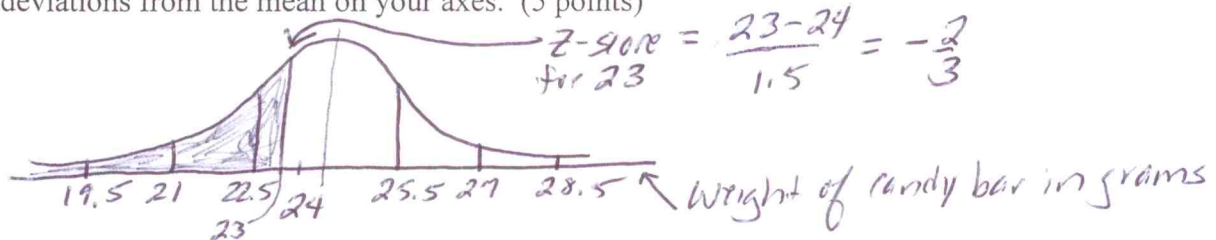 deviations from the mean on your axes. (5 points)
Z-score = 23-24 / 1.5 = - 2/3
for 23
19.5 21 22.5 24 25.5 27 28.5 weight of candy bar in grams
23